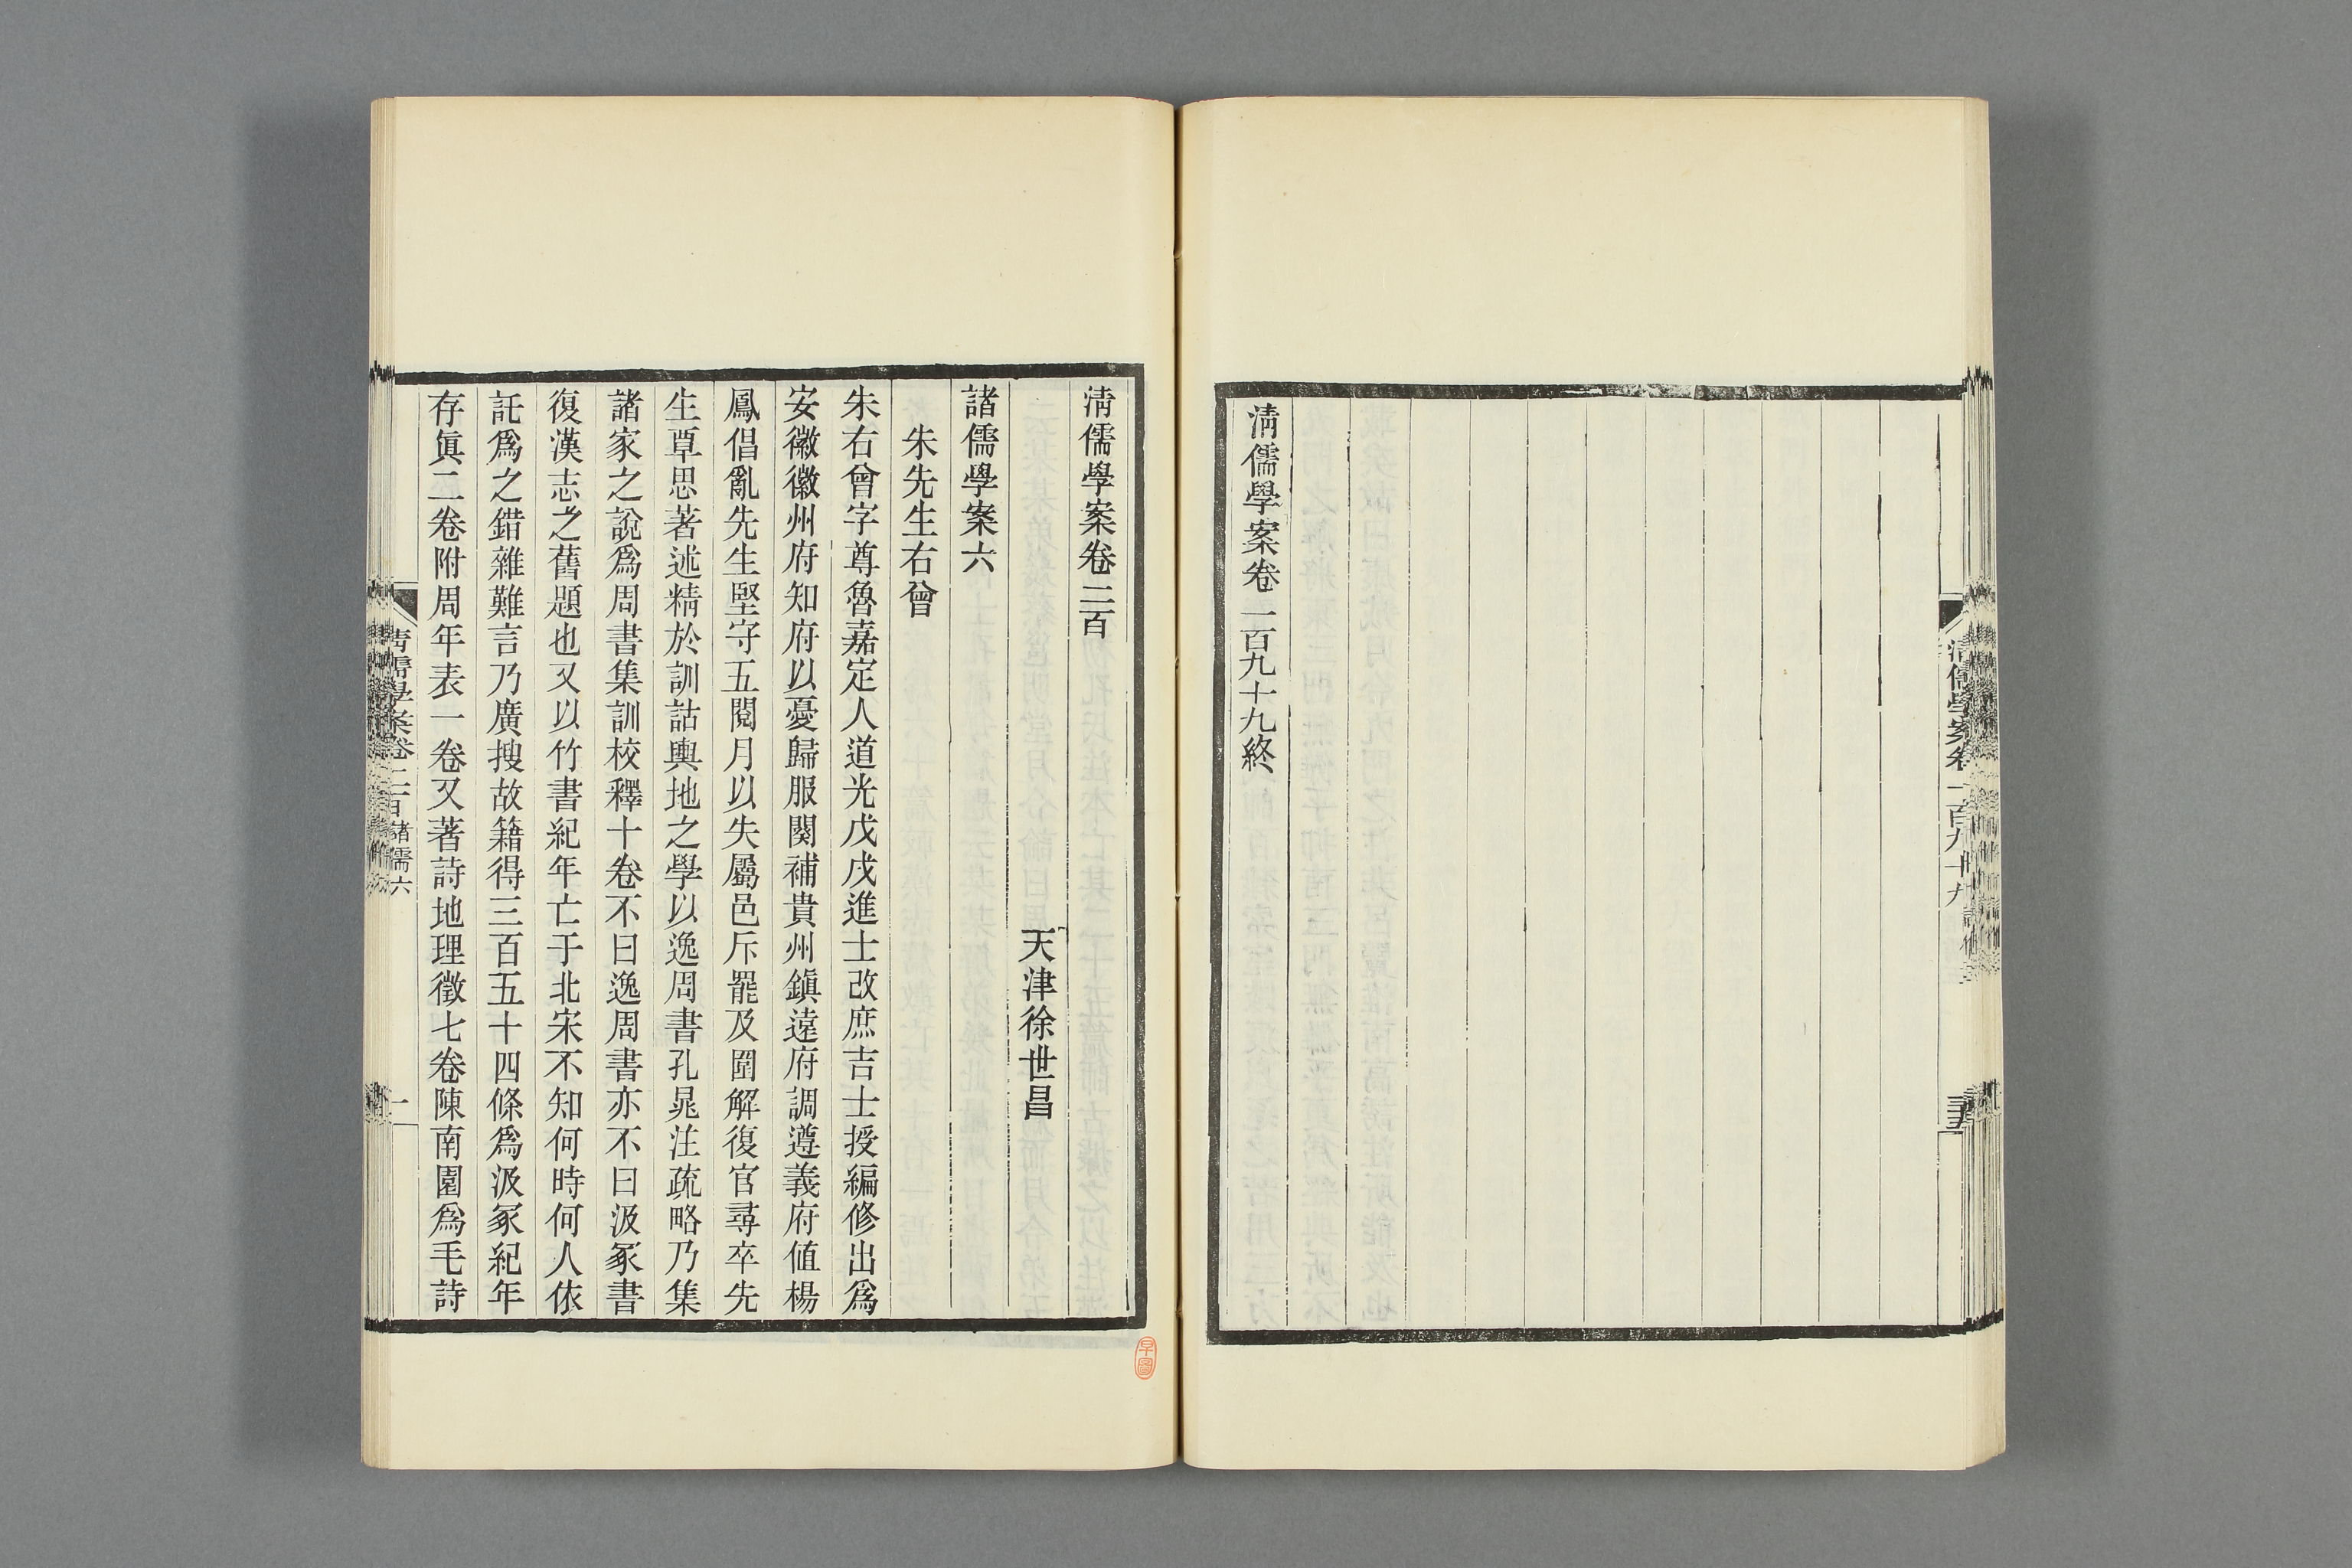 清儒學案卷一百九十九終
清儒學案卷二百
天津徐世昌
諸儒學案六
朱先生右曾
朱右曾字尊魯嘉定人道光戊戌進士改庶吉士授編修出爲
安徽徽州府知府以憂歸服闋補貴州鎭遠府調遵義府値楊
鳳倡亂先生堅守五閱月以失屬邑斥罷及圍解復官尋卒先
生覃思著述精於訓詁輿地之學以逸周書孔晁注疏略乃集
諸家之說爲周書集訓校釋十卷不曰逸周書亦不曰汲冢書
復漢志之舊題也又以竹書紀年亡于北宋不知何時何人依
託爲之錯雜難言乃廣搜故籍得三百五十四條爲汲冢紀年
存眞二卷附周年表一卷又著詩地理徵七卷陳南園爲毛詩
清儒學案卷二百 諸儒六
一
早圖